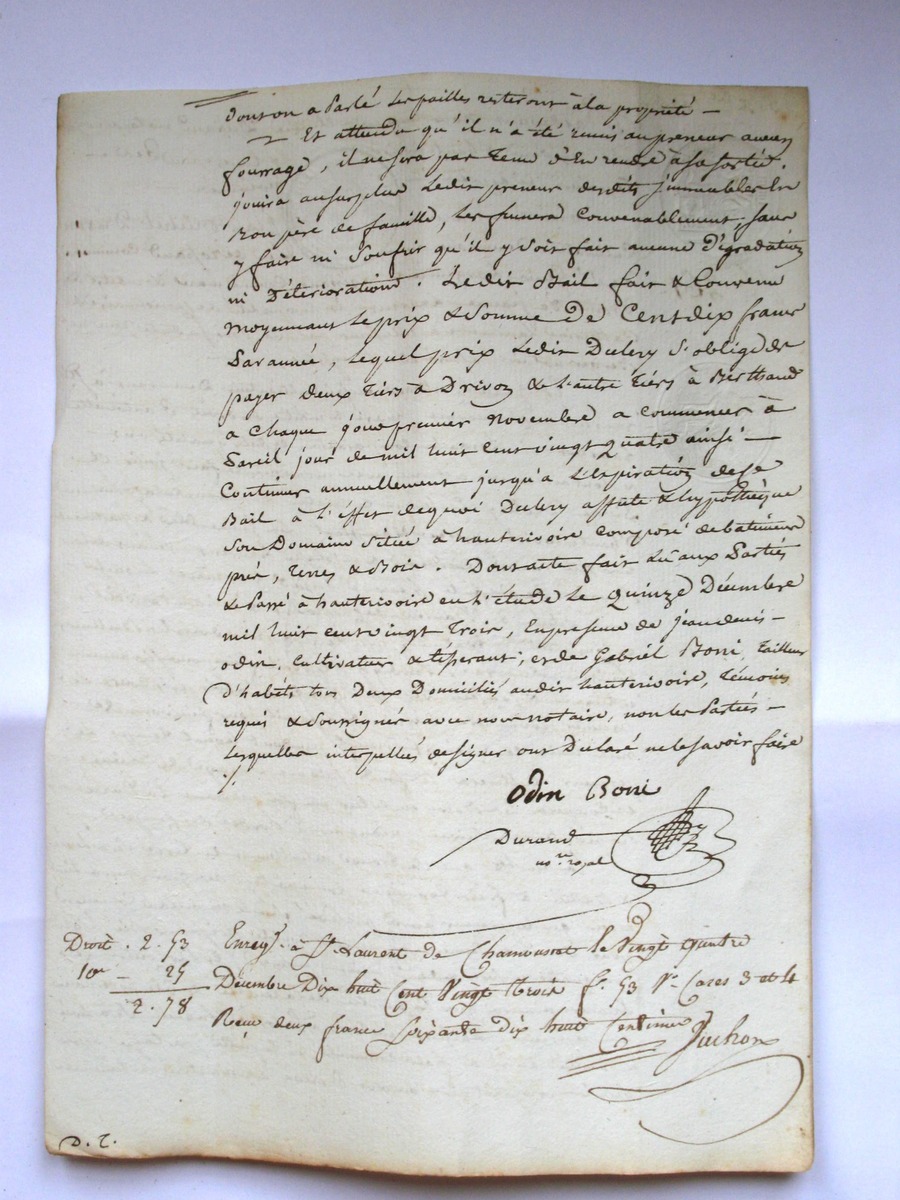 dont on a Parlé Les pailles resteront à la propriété —
Et attendu qu'il n'a été remis au preneur aucun
fourrage, il ne sera pas tenu d'En rendre à sa sortie.
jouira au surplus Ledit preneur desdits jmmeubles En
Bon père de famille, Les fumera Convenablement, sans
y faire ni Soufrir qu'il y soit fait aucune Dégradation
ni Déterioration. Ledit Bail fait & Convenu
moyennant Le prix & Somme de Cent dix francs
Par année, Lequel prix Ledit Duclery S'oblige de
payer deux tiers à Drivon & L'autre tiers à Berthaud
a Chaque jour premier Novembre a Commencer à
Pareil jour de mil huit Cent vingt quatre ainsi —
Continuer annuellement jusqu'à L'Expiration de ce
Bail à L'éffet de quoi Duclery affecte & hypothèque
Son Domaine Situé à hauterivoire Composé de batiments
prés, terres & Bois. Dont acte fait Lu aux Parties
& Passé à hauterivoire en L'étude Le Quinze Décembre
mil huit cent vingt Trois, En presence de jean denis —
odin, Cultivateur & tisserant, et de Gabriél Boni, tailleur
D'habits tous Deux Domiciliés audit hauterivoire, témoins
requis & Soussignés avec nous notaire, non les Parties —
Lesquelles interpellées de signer ont Déclaré ne le savoir faire
./.
Odin Boni
Durand
no.re royal
Droit . 2 . 53
10e — 25
2 . 78
Enreg. à St Laurent de Chamousset le Vingt quatre
Décembre Dix huit Cent Vingt trois f.o 53 Vo Cases 3 et 4
Reçu deux francs Soixante dix huit Centimes
D. T.